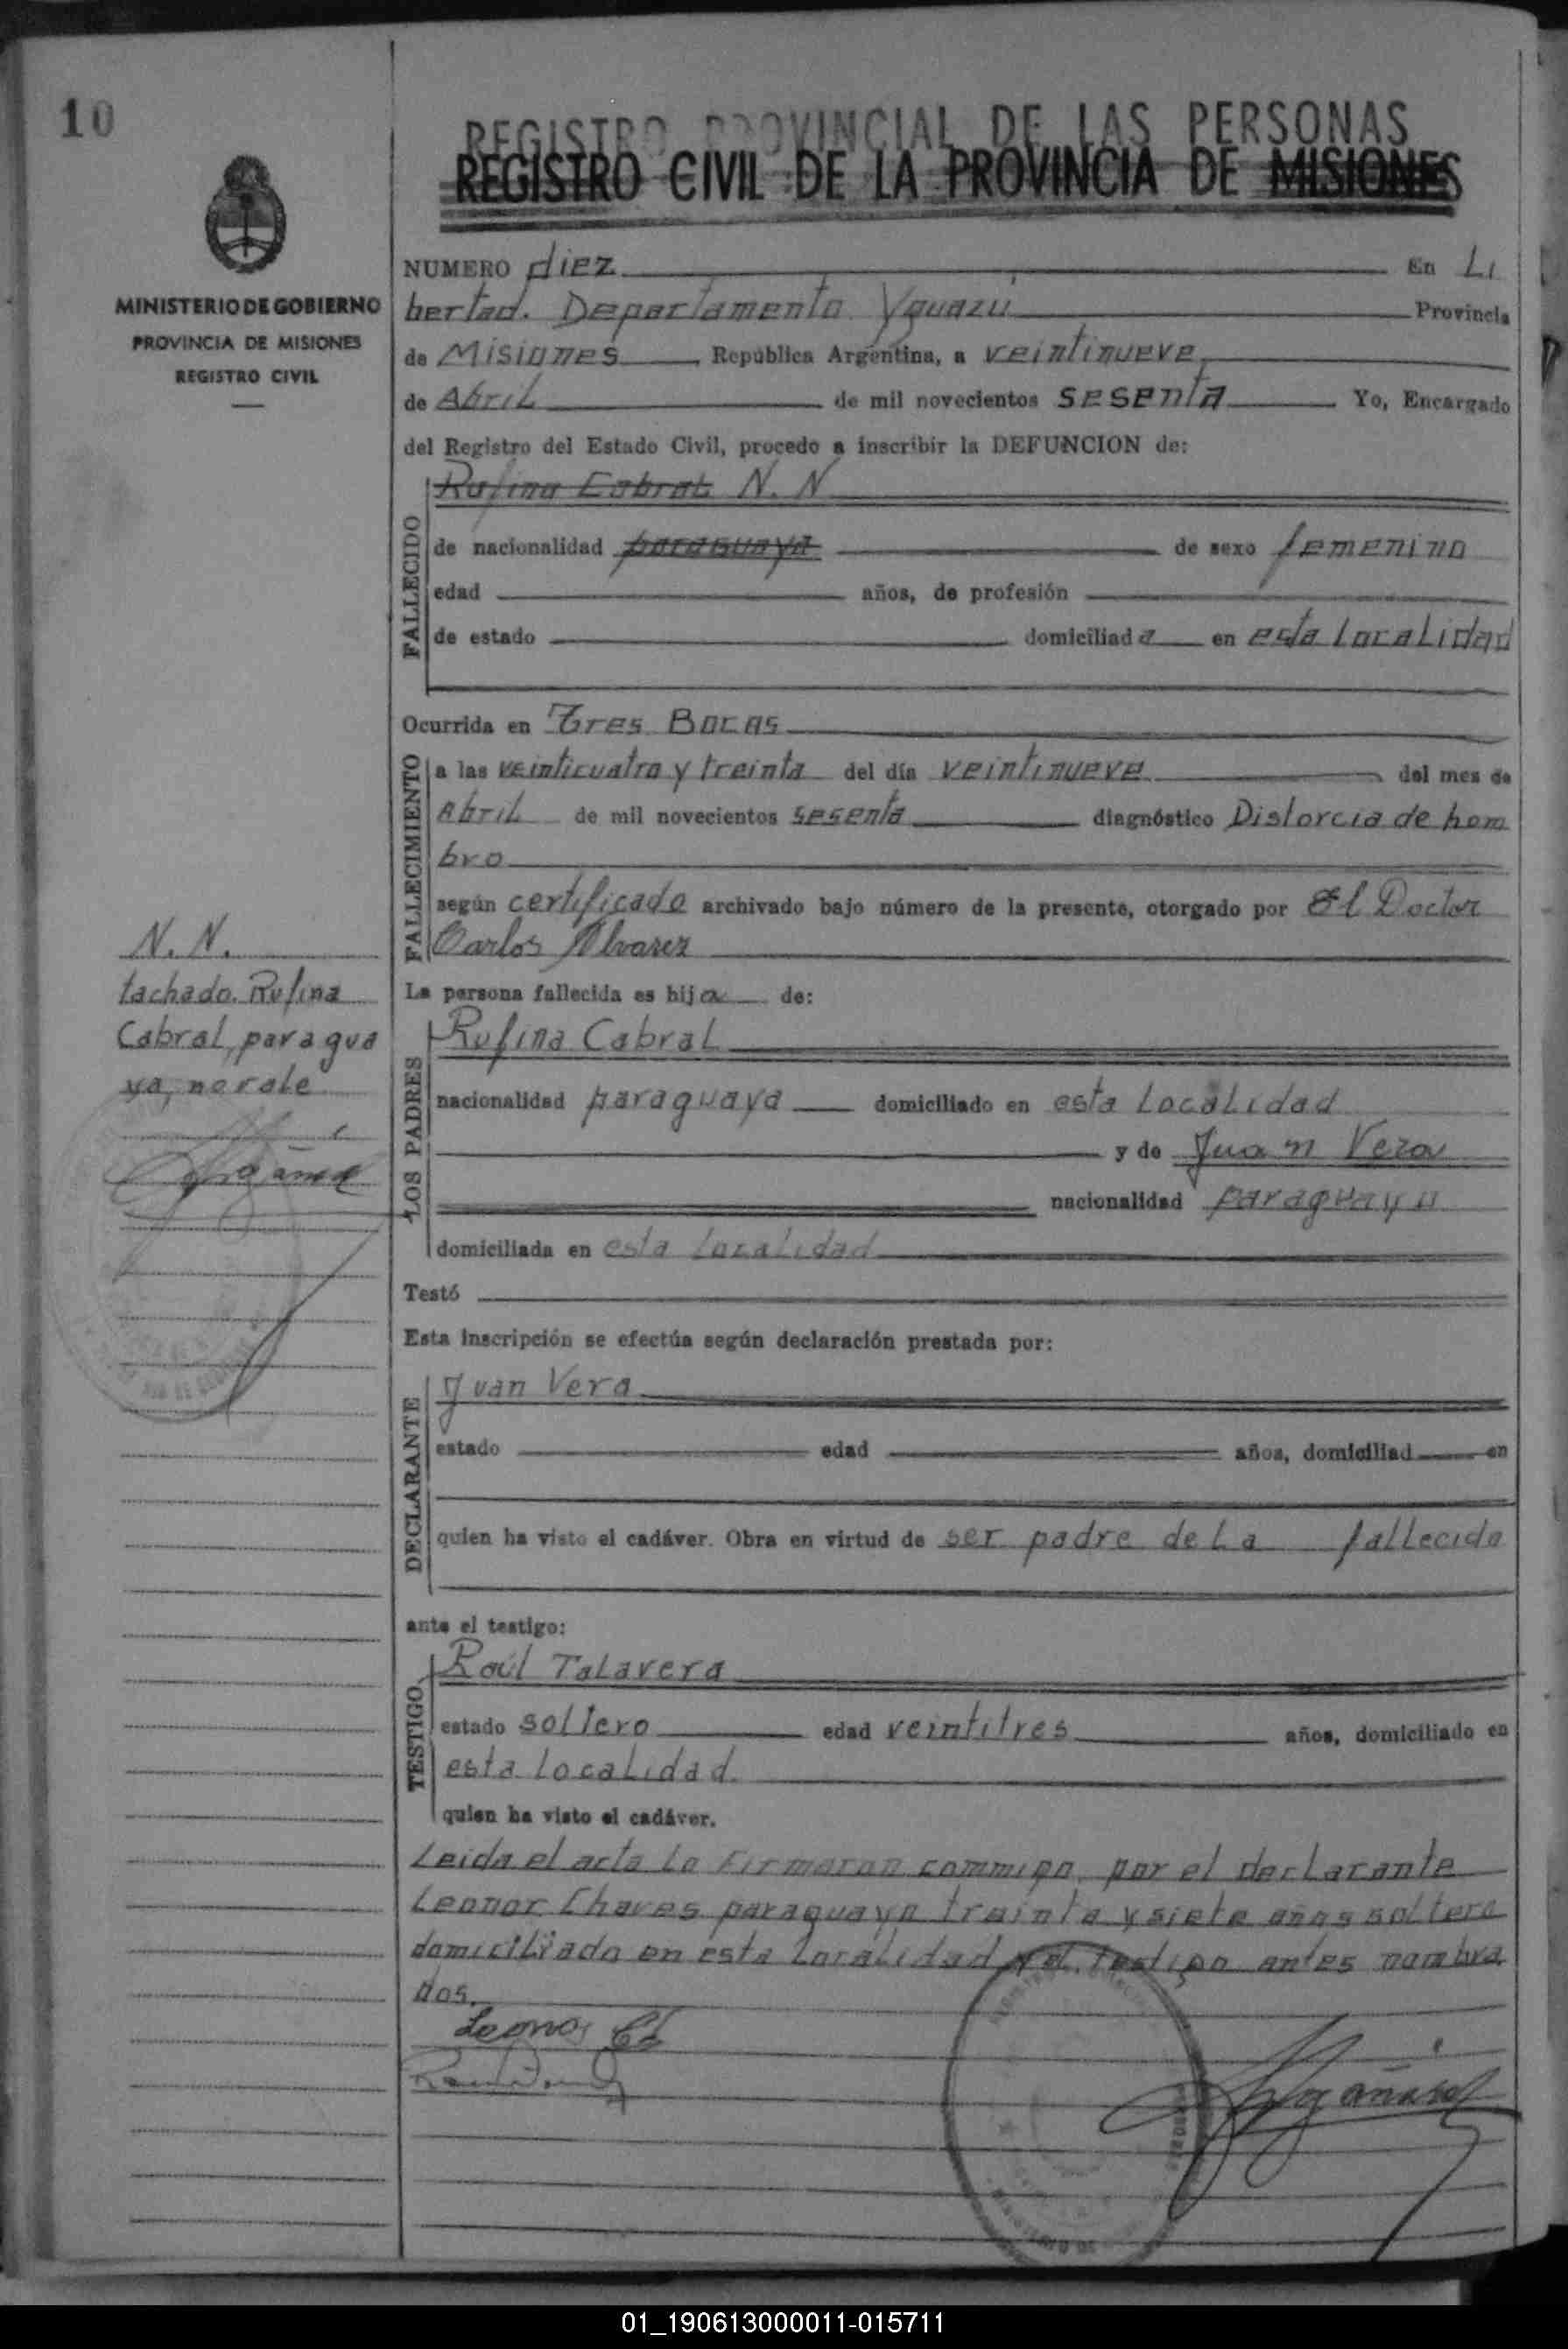 10
REGISTRO PROVINCIAL DE LAS PERSONAS
REGISTRO CIVIL DE LA PROVINCIA DE MISIONES
MINISTERIO DE GOBIERNO
PROVINCIA DE MISIONES
REGISTRO CIVIL
NUMERO diez En Li
bertad. Departamento Yguazú Provincia
de Misiones República Argentina, a veintinueve
de Abril de mil novecientos sesenta Yo, Encargado
del Registro del Estado Civil, procedo a inscribir la DEFUNCION de:
FALLECIDO
Rufina Cabral N. N
de nacionalidad paraguaya de sexo femenino
edad años, de profesión
de estado domiciliada en esta Localidad
Ocurrida en Tres Bocas
FALLECIMIENTO
a las veinticuatro y treinta del día veintinueve del mes de
Abril de mil novecientos sesenta diagnóstico Distorcia de hom
bro
según certificado archivado bajo número de la presente, otorgado por El Doctor
Carlos Alvarez
La persona fallecida es hija de:
LOS PADRES
Rufina Cabral
nacionalidad paraguaya domiciliado en esta Localidad
y de Juan Vera
nacionalidad paraguayo
domiciliada en esta Localidad
Testó
Esta inscripción se efectúa según declaración prestada por:
DECLARANTE
Juan Vera
estado edad años, domiciliad en
quien ha visto el cadáver. Obra en virtud de ser padre de La fallecida
ante el testigo:
TESTIGO
Raúl Talavera
estado soltero edad veintitres años, domiciliado en
esta Localidad.
quien ha visto el cadáver.
Leida el acta La Firmaron commigo, por el declarante
Leonor Chaves paraguayo treinta y siete años soltero
domiciliado en esta Localidad y el testigo antes nombra
dos.
N. N.
tachado. Rufina
Cabral, paragua
ya, no vale
01_190613000011-015711